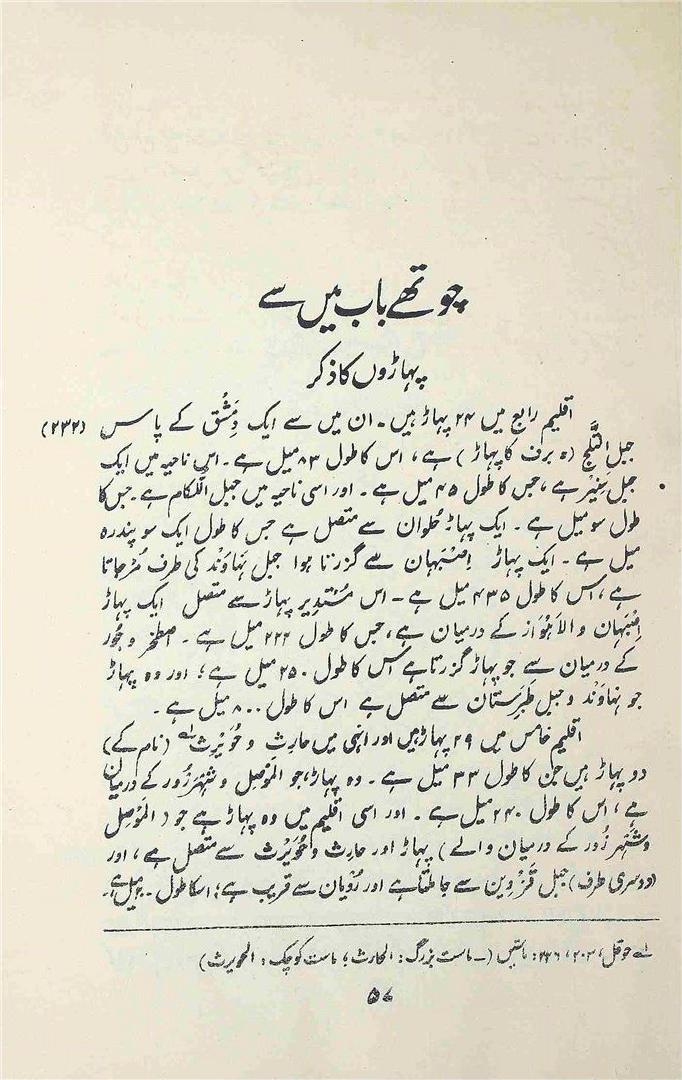 چوتھے باب میں سے
پہاڑوں کا ذکر
اقلیم رابع میں ۲۴ پہاڑ ہیں۔ ان میں سے ایک دِمَشْق کے پاس (۲۳۲)
جبل الثَّلج (ہ برف کا پہاڑ) ہے، اس کا طول ۸۳ میل ہے۔ اس ناحیہ میں ایک
جبل سَنِیْر ہے، جس کا طول ۴۵ میل ہے۔ اور اسی ناحیہ میں جبل اللُّکام ہے۔ جس کا
طول سو میل ہے۔ ایک پہاڑ حُلوان سے متصل ہے جس کا طول ایک سو پندرہ
میل ہے۔ ایک پہاڑ اِصْبَہان سے گزرتا ہوا جبل نہاوَنْد کی طرف مُڑ جاتا
ہے، اس کا طول ۴۳۵ میل ہے۔ اس مُسْتَدِیر پہاڑ سے متصل ایک پہاڑ
اِصْبَہان و الاَہْوَاز کے درمیان ہے، جس کا طول ۲۲۴ میل ہے۔ اصطخر و جُور
کے درمیان سے جو پہاڑ گزرتا ہے اس کا طول ۲۵۰ میل ہے؛ اور وہ پہاڑ
جو نہاوَنْد و جبل طَبَرِستان سے متصل ہے اس کا طول ۸۰۰ میل ہے۔
اقلیم خامس میں ۲۹ پہاڑ ہیں اور انہی میں حارِث و حُوَیْرِث لہ (نام کے)
دو پہاڑ ہیں جن کا طول ۳۳ میل ہے۔ وہ پہاڑ، جو المَوْصِل و شَہْرَزُور کے درمیان
ہے، اس کا طول ۲۴۰ میل ہے۔ اور اسی اقلیم میں وہ پہاڑ ہے جو (المَوْصِل
و شَہْرَزُور کے درمیان والے) پہاڑ اور حارِث و حُوَیْرِث سے متصل ہے، اور
(دوسری طرف) جبل قَزْوِین سے جا ملتا ہے اور رُوْیان سے قریب ہے؛ اسکا طول میل ہے۔
لہ حوقل، ۲۰۳، ۲۴۶: (ـ ماست بزرگ: الحارث؛ ماست کوچک: الحویرث)
۵۷